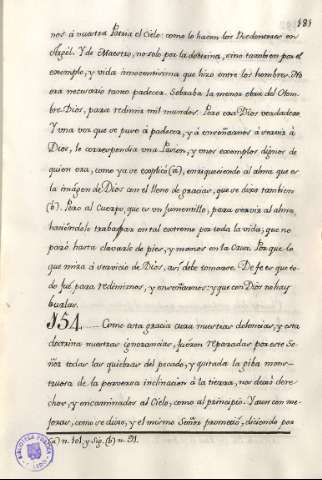 181
nos á nuestra Patria el Cielo: como lo hacen los Predicadores en
Argél. Y de Maestro, no solo por la doctrina, sino tambien por el
exemplo, y vida innocentisima que hizo entre los hombres. No
era necesario tanto padecer. Sobraba la menor obra del Hom-
bre Dios, para redimir mil mundos. Pero era Dios verdadero.
Y una vez que se puso á padecer, y á enseñarnos á servir á
Dios, le correspondia una Pasion, y unos exemplos dignos de
quien era, como ya se explicó (a), enriqueciendo al alma que es
la imágen de Dios con el lleno de gracias, que se dixo tambien
(b). Pero al Cuerpo, que es un jumentillo, para servir al alma,
haciendole trabajar en tal extremo por toda la vida, que no
paró hasta clavarle de pies, y manos en la Cruz. Porque lo
que mira á servicio de Dios, así debe tomarse. De fe es que to-
do fué para redimirnos, y enseñarnos: y que con Dios no hay
burlas.
§154. Como esta gracia cura nuestras dolencias, y esta
doctrina nuestras ignorancias, fueron reparadas por este Se-
ñor todas las quiebras del pecado, y quitada la giba mons-
truosa de la perversa inclinacion á la tierra, nos dexó dere-
chos, y encaminados al Cielo, como al principio. Y aun con me-
joras, como se dixo, y el mismo Señor prometió, diciendo por
(a) n. 101. y sig. (b) n. 91.